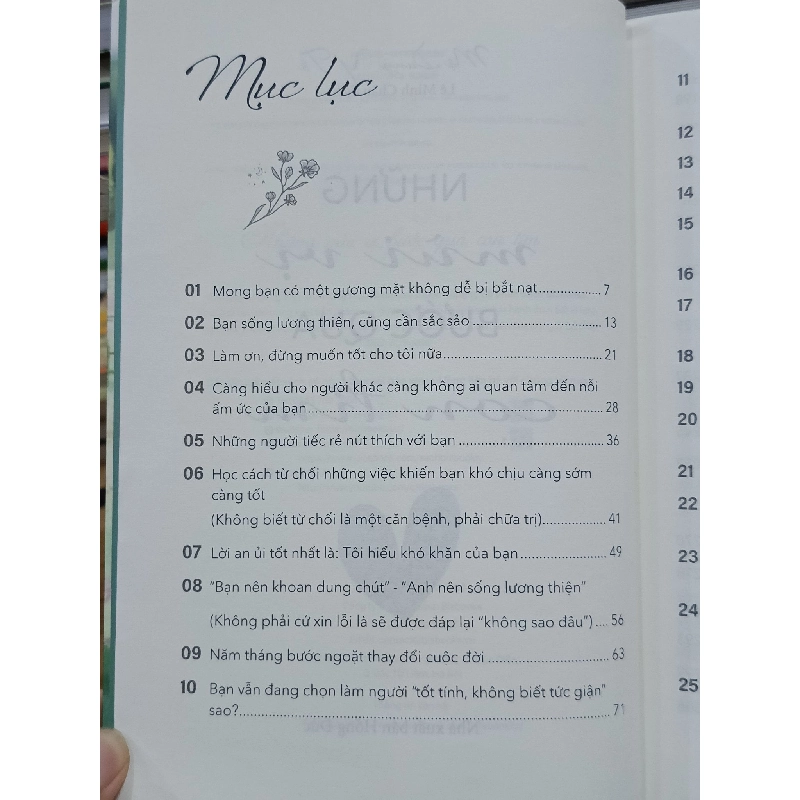 Mục lục
01 Mong bạn có một gương mặt không dễ bị bắt nạt.................. 7
02 Bạn sống lương thiện, cũng cần sắc sảo .................. 13
03 Làm ơn, đừng muốn tốt cho tôi nữa.................. 21
04 Càng hiểu cho người khác càng không ai quan tâm đến nỗi
ấm ức của bạn.................. 28
05 Những người tiếc rẻ nút thích với bạn .................. 36
06 Học cách từ chối những việc khiến bạn khó chịu càng sớm
càng tốt
(Không biết từ chối là một căn bệnh, phải chữa trị).................. 41
07 Lời an ủi tốt nhất là: Tôi hiểu khó khăn của bạn.................. 49
08 "Bạn nên khoan dung chút" - "Anh nên sống lương thiện"
(Không phải cứ xin lỗi là sẽ được đáp lại "không sao đâu").... 56
09 Năm tháng bước ngoặt thay đổi cuộc đời .................. 63
10 Bạn vẫn đang chọn làm người "tốt tính, không biết tức giận"
sao?.................. 71
11
12
13
14
15
16
17
18
19
20
21
22
23
24
25